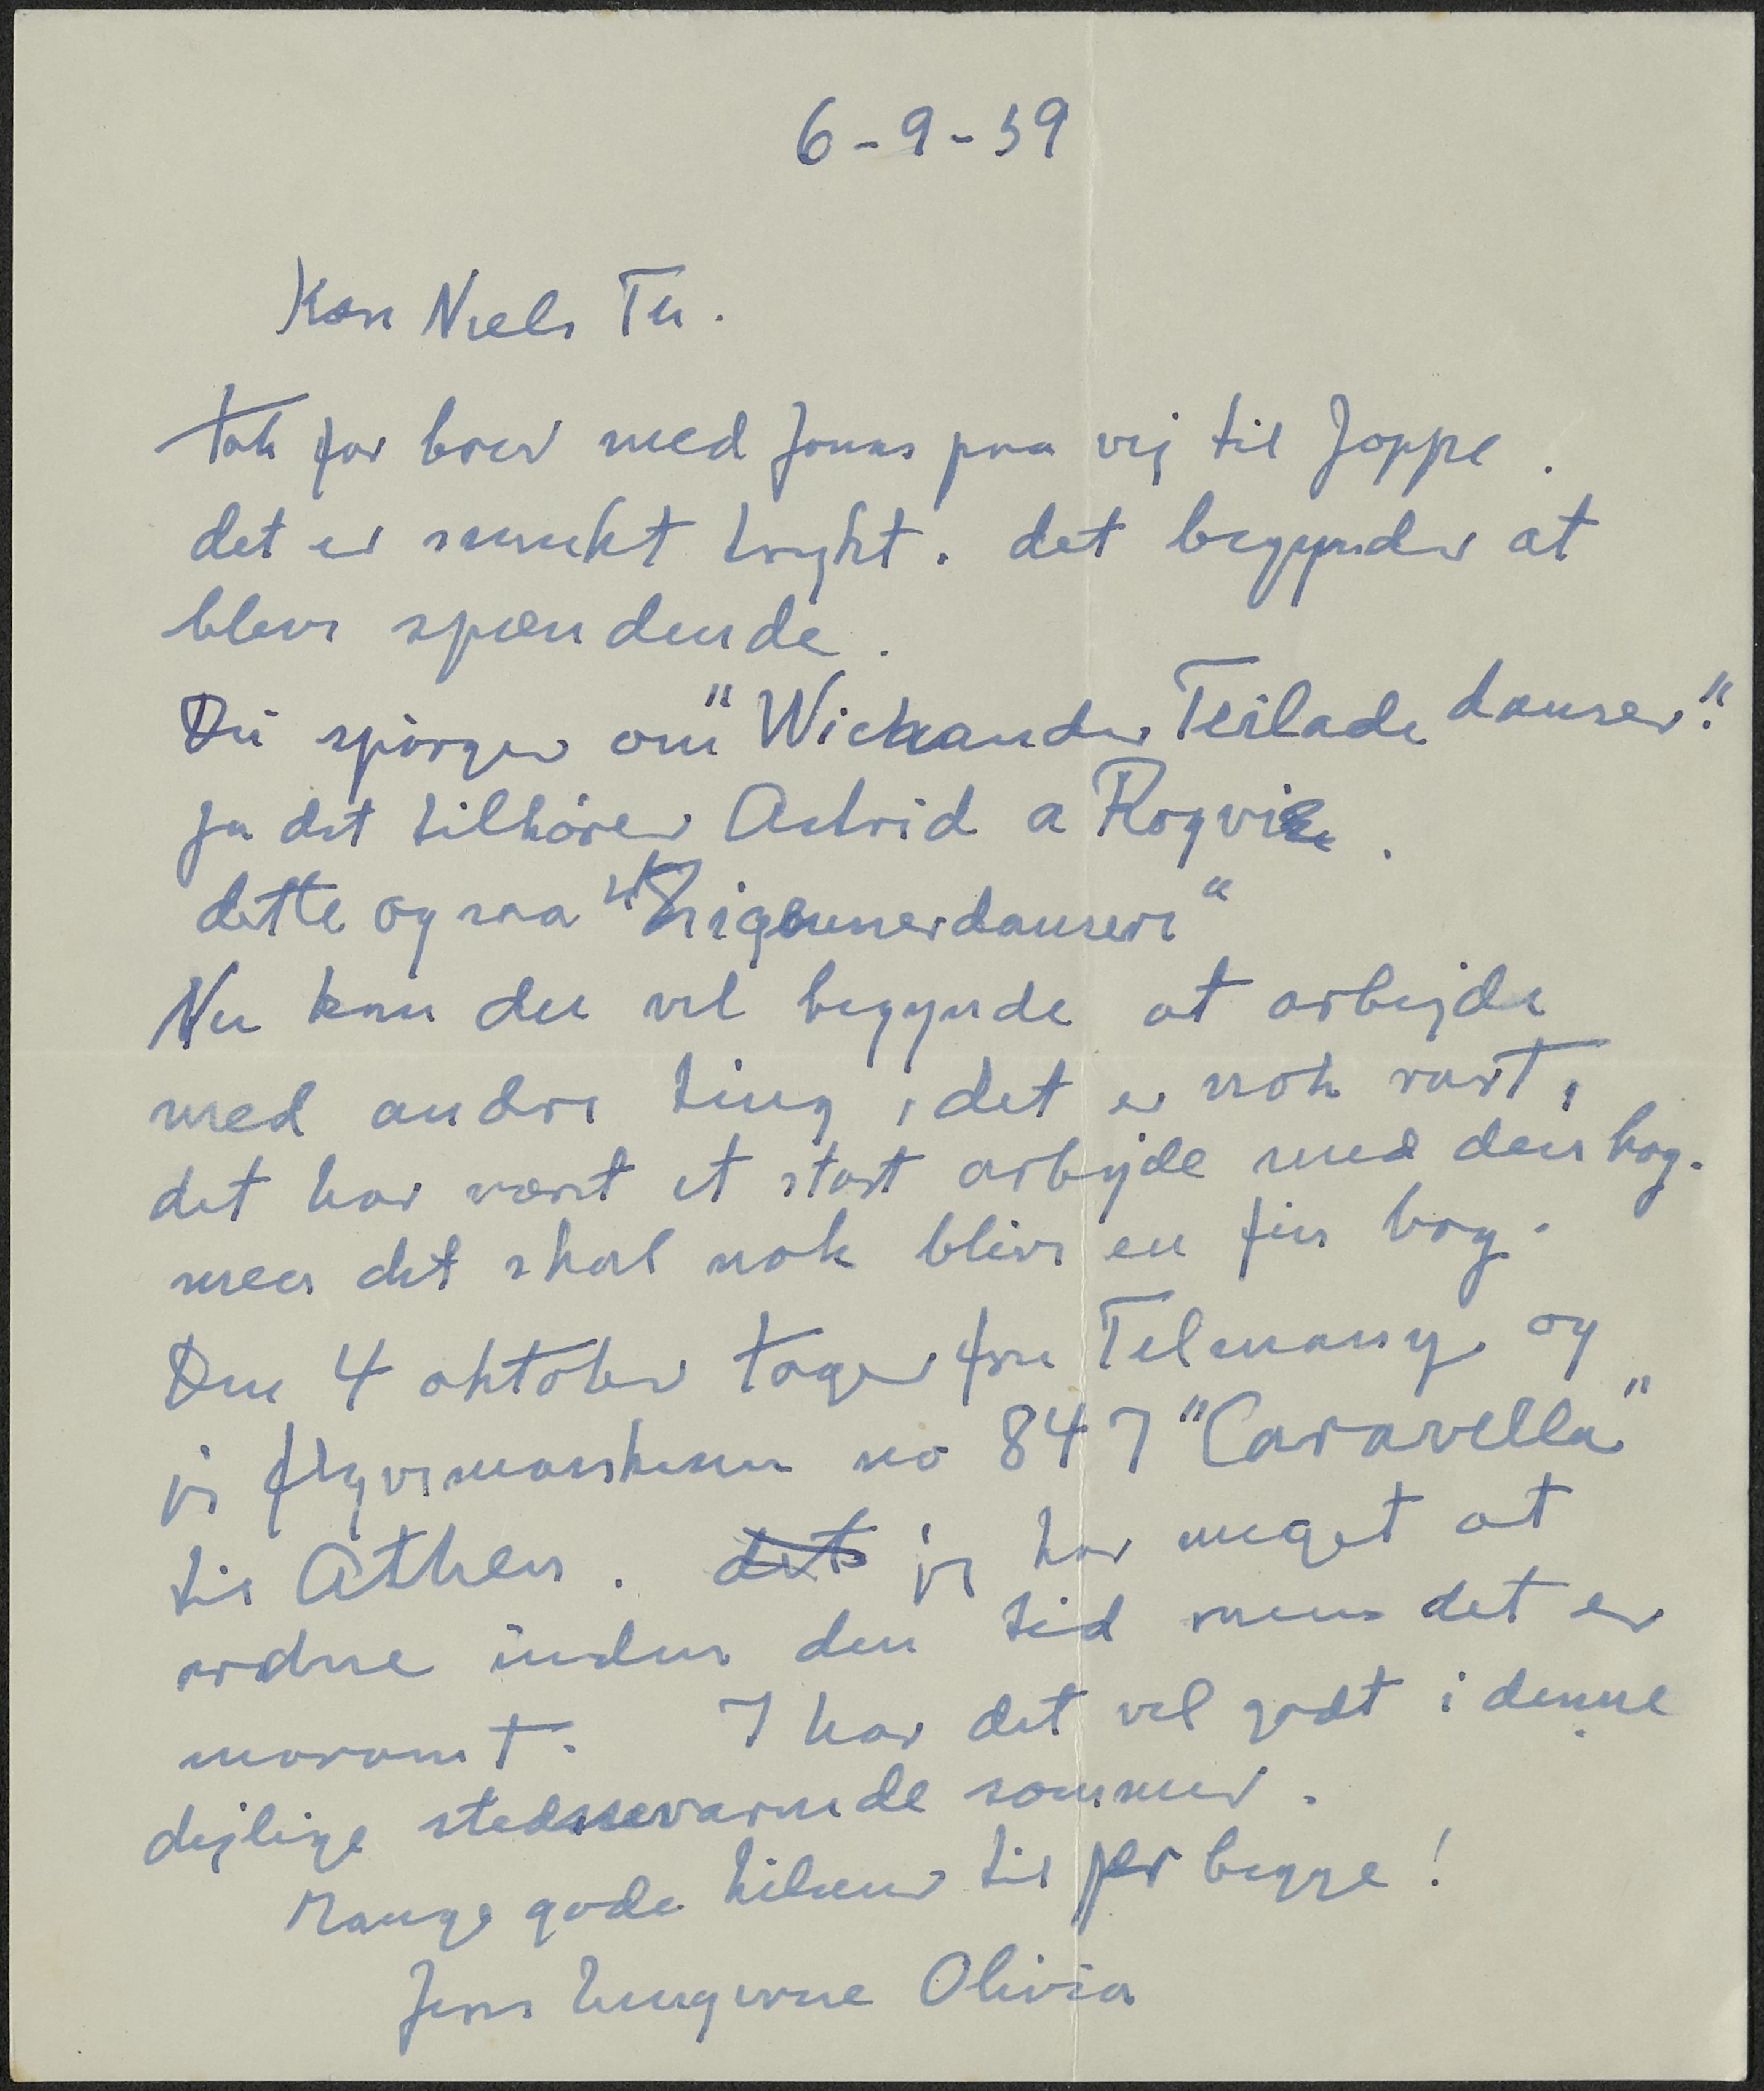 6-9-59
Kære Niels Th.
Tak for brev med Jonas paa vej til Joppe.
det er smukt trykt. det begynder at
blive spændende.
Du spørger om "Wickander Teilade danser".
ja det tilhører Astrid a Rogvi
dette ogsaa "Zigeunerdansere"
Nu kan du vel begynde at arbejde
med andre ting, det er nok rart,
det har været et stort arbejde med den bog.
men det skal nok blive en fin bog.
Den 4 oktober tager fru Telmany og
jeg flyvemaskinen no 847 "Caravella"
til Athen. det jeg har meget at
ordne inden den tid men det er
morsomt. I har det vel godt i denne
dejlige stedsevarende sommer.
Mange gode hilsener til jer begge!
Jens hengivne Olivia